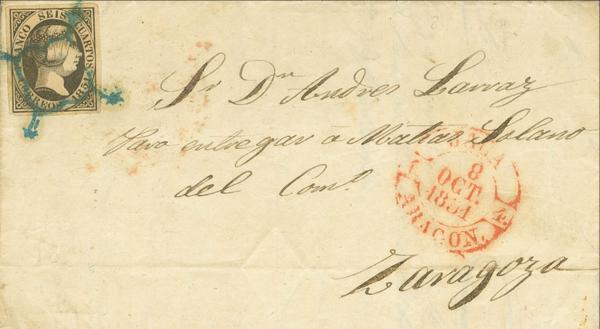 FRANCO SEIS CUARTOS
CORREOS 1851
Sr Dn Andres Larraz
Para entregar a Matias Solano
del Como
8
OCT.
1851
ARAGON.
Zaragoza